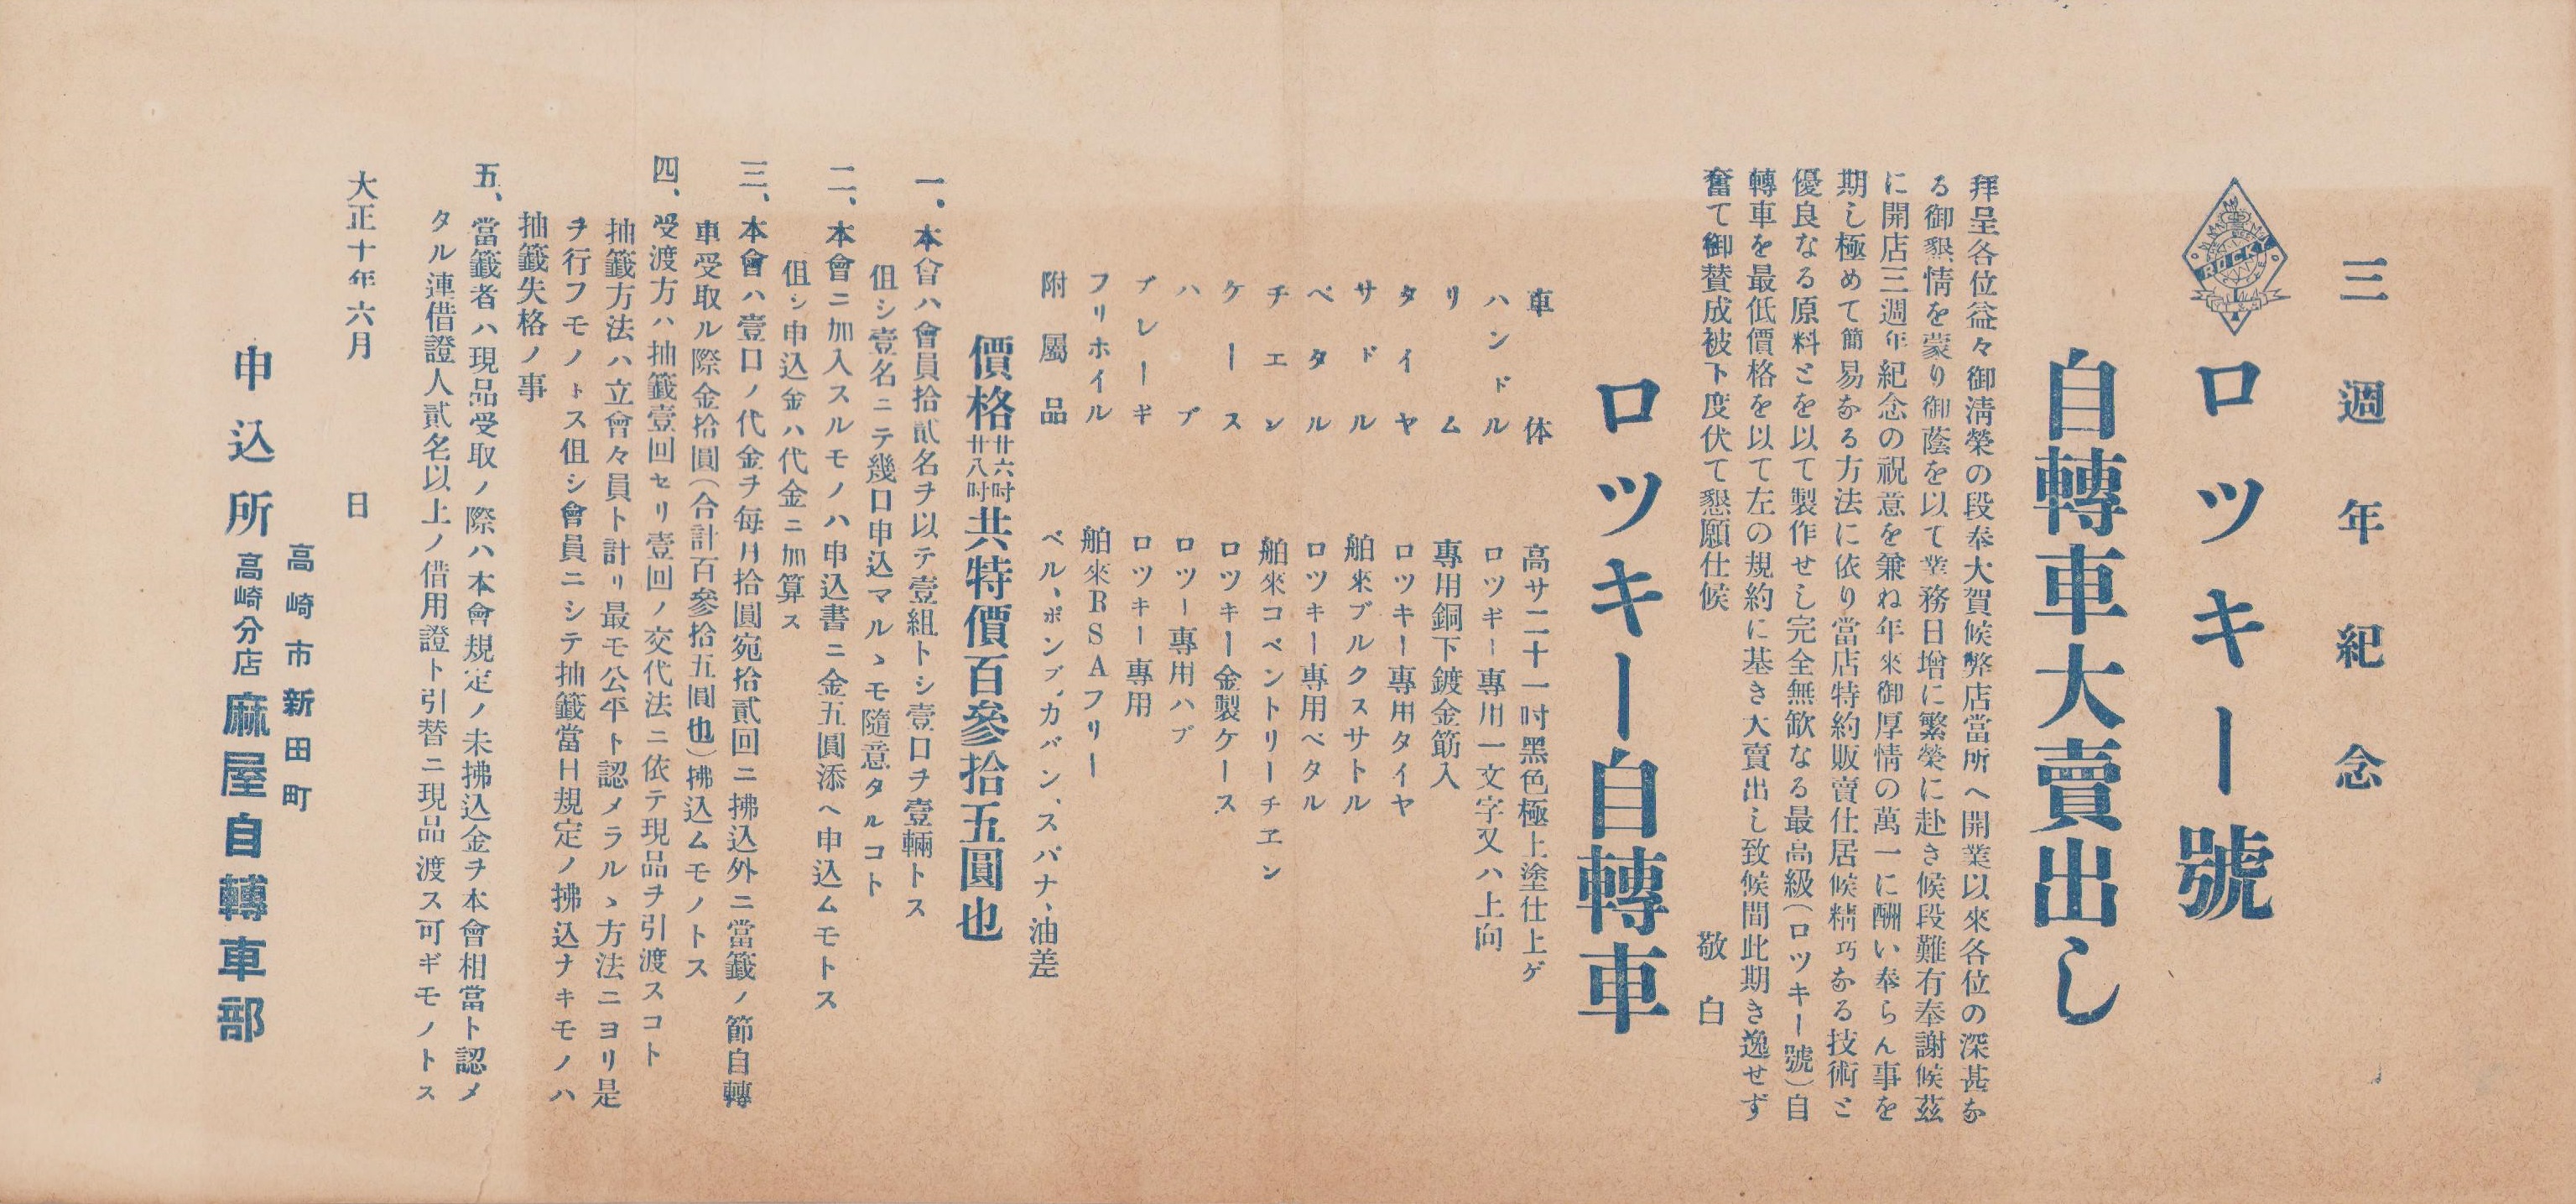 三週年紀念
ROCKY
ロツキー號
自轉車大賣出し
拜呈各位益々御淸榮の段奉大賀候弊店當所へ開業以來各位の深甚な
る御懇情を蒙り御蔭を以て業務日增に繁榮に赴き候段難有奉謝候茲
に開店三週年紀念の祝意を兼ね年來御厚情の萬一に酬い奉らん事を
期し極めて簡易なる方法に依り當店特約販賣仕居候精巧なる技術と
優良なる原料とを以て製作せし完全無欿なる最高級(ロツキー號)自
轉車を最低價格を以て左の規約に基き大賣出し致候間此期き逸せず
奮て御賛成被下度伏て懇願仕候 敬白
ロツキー自轉車
車体 高サ二十一吋黑色極上塗仕上ゲ
ハンドル ロツギー專用一文字又ハ上向
リム 專用銅下鍍金筋入
タイヤ ロツキー專用タイヤ
サドル 舶來ブルクスサトル
ペタル ロツキー專用ペタル
チエン 舶來コペントリーチヱン
ケース ロツキー金製ケース
ハブ ロツー專用ハブ
ブレーギ ロツキー專用
フリホイル 舶來BSAフリー
附屬品 ベル、ポンプ、カバン、スパナ、油差
價格廿六吋廿八吋共特價百參拾五圓也
一、本會ハ會員拾貳名ヲ以テ壹組トシ壹口ヲ壹輛トス
伹シ壹名ニテ幾口申込マルヽモ隨意タルコト
二、本會ニ加入スルモノハ申込書ニ金五圓添ヘ申込ムモトス
伹シ申込金ハ代金ニ加算ス
三、本會ハ壹口ノ代金ヲ每月拾圓宛拾貳回ニ拂込外ニ當籤ノ節自轉
車受取ル際金拾圓(合計百參拾五圓也)拂込ムモノトス
四、受渡方ハ抽籤壹回セリ壹回ノ交代法ニ依テ現品ヲ引渡スコト
抽籤方法ハ立會々員ト計リ最モ公平ト認メラルヽ方法ニヨリ是
ヲ行フモノトス伹シ會員ニシテ抽籤當日規定ノ拂込ナキモノハ
抽籤失格ノ事
五、當籤者ハ現品受取ノ際ハ本會規定ノ未拂込金ヲ本會相當ト認メ
タル連借證人貳名以上ノ借用證ト引替ニ現品渡ス可ギモノトス
大正十年六月 日
高崎市新田町
申込所 高崎分店 麻屋自轉車部